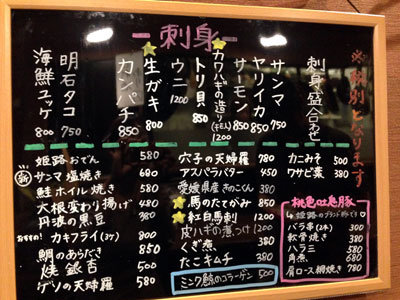 ー刺身ー
※税別となります
刺身盛合わせ
サンマ 850
ヤリイカ 850
サーモン 850
カワハギの造り(キモ入) 1200
トリ貝 850
ウニ 1200
生ガキ 800
カンパチ 850
明石タコ 750
海鮮ユッケ 800
姫路おでん 580
サンマ塩焼き 680
鮭ホイル焼き 580
大根変わり揚げ 480
丹波の黒豆 380
おすすめ! カキフライ(3ケ) 600
鯛のあらだき 580
焼銀杏 500
ゲソの天婦羅 580
穴子の天婦羅 780
アスパラバター 450
愛媛県産きのこくん 380
馬のたてがみ 850
紅白馬刺 1300
皮ハギの薄つけ 1200
くぎ煮 380
たこキムチ 380
ミンク鯨のコラーゲン 500
カニみそ 500
ワサビ菜 380
桃色吐息豚
姫路のブランド豚です♡
バラ串(2本) 300
軟骨焼き 380
ハラミ 580
角煮 680
肩ロース網焼き 780